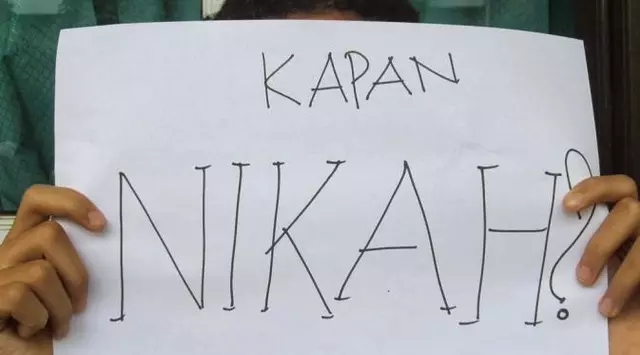 KAPAN
NIKAH?